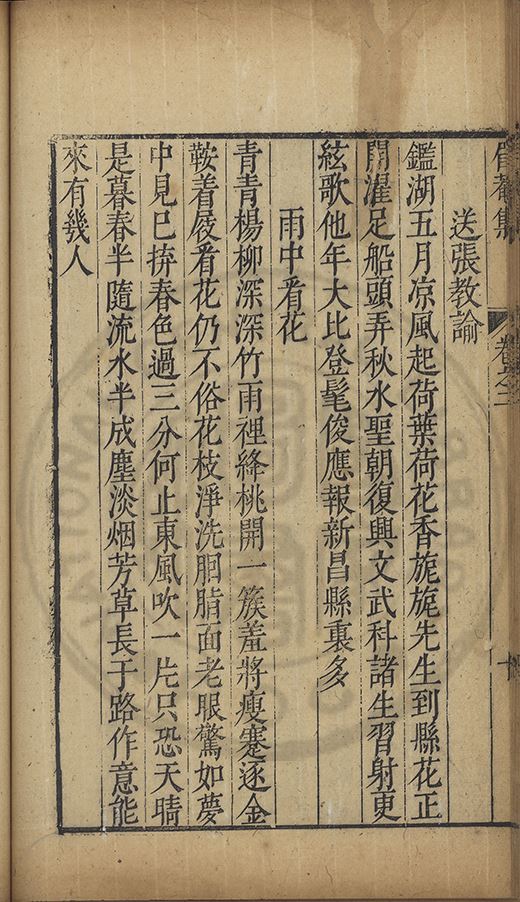 卷之三
十
送張教諭
鑑湖五月凉風起荷葉荷花香旎旎先生到縣花正
開濯足船頭弄秋水聖朝復興文武科諸生習射更
絃歌他年大比登髦俊應報新昌縣裏多
雨中看花
青青楊柳深深竹雨裡絳桃開一簇羞將瘦蹇逐金
鞍着屐看花仍不俗花枝淨洗胭脂面老眼驚如夢
中見巳拚春色過三分何止東風吹一片只恐天晴
是暮春半隨流水半成塵淡烟芳草長于路作意能
來有幾人